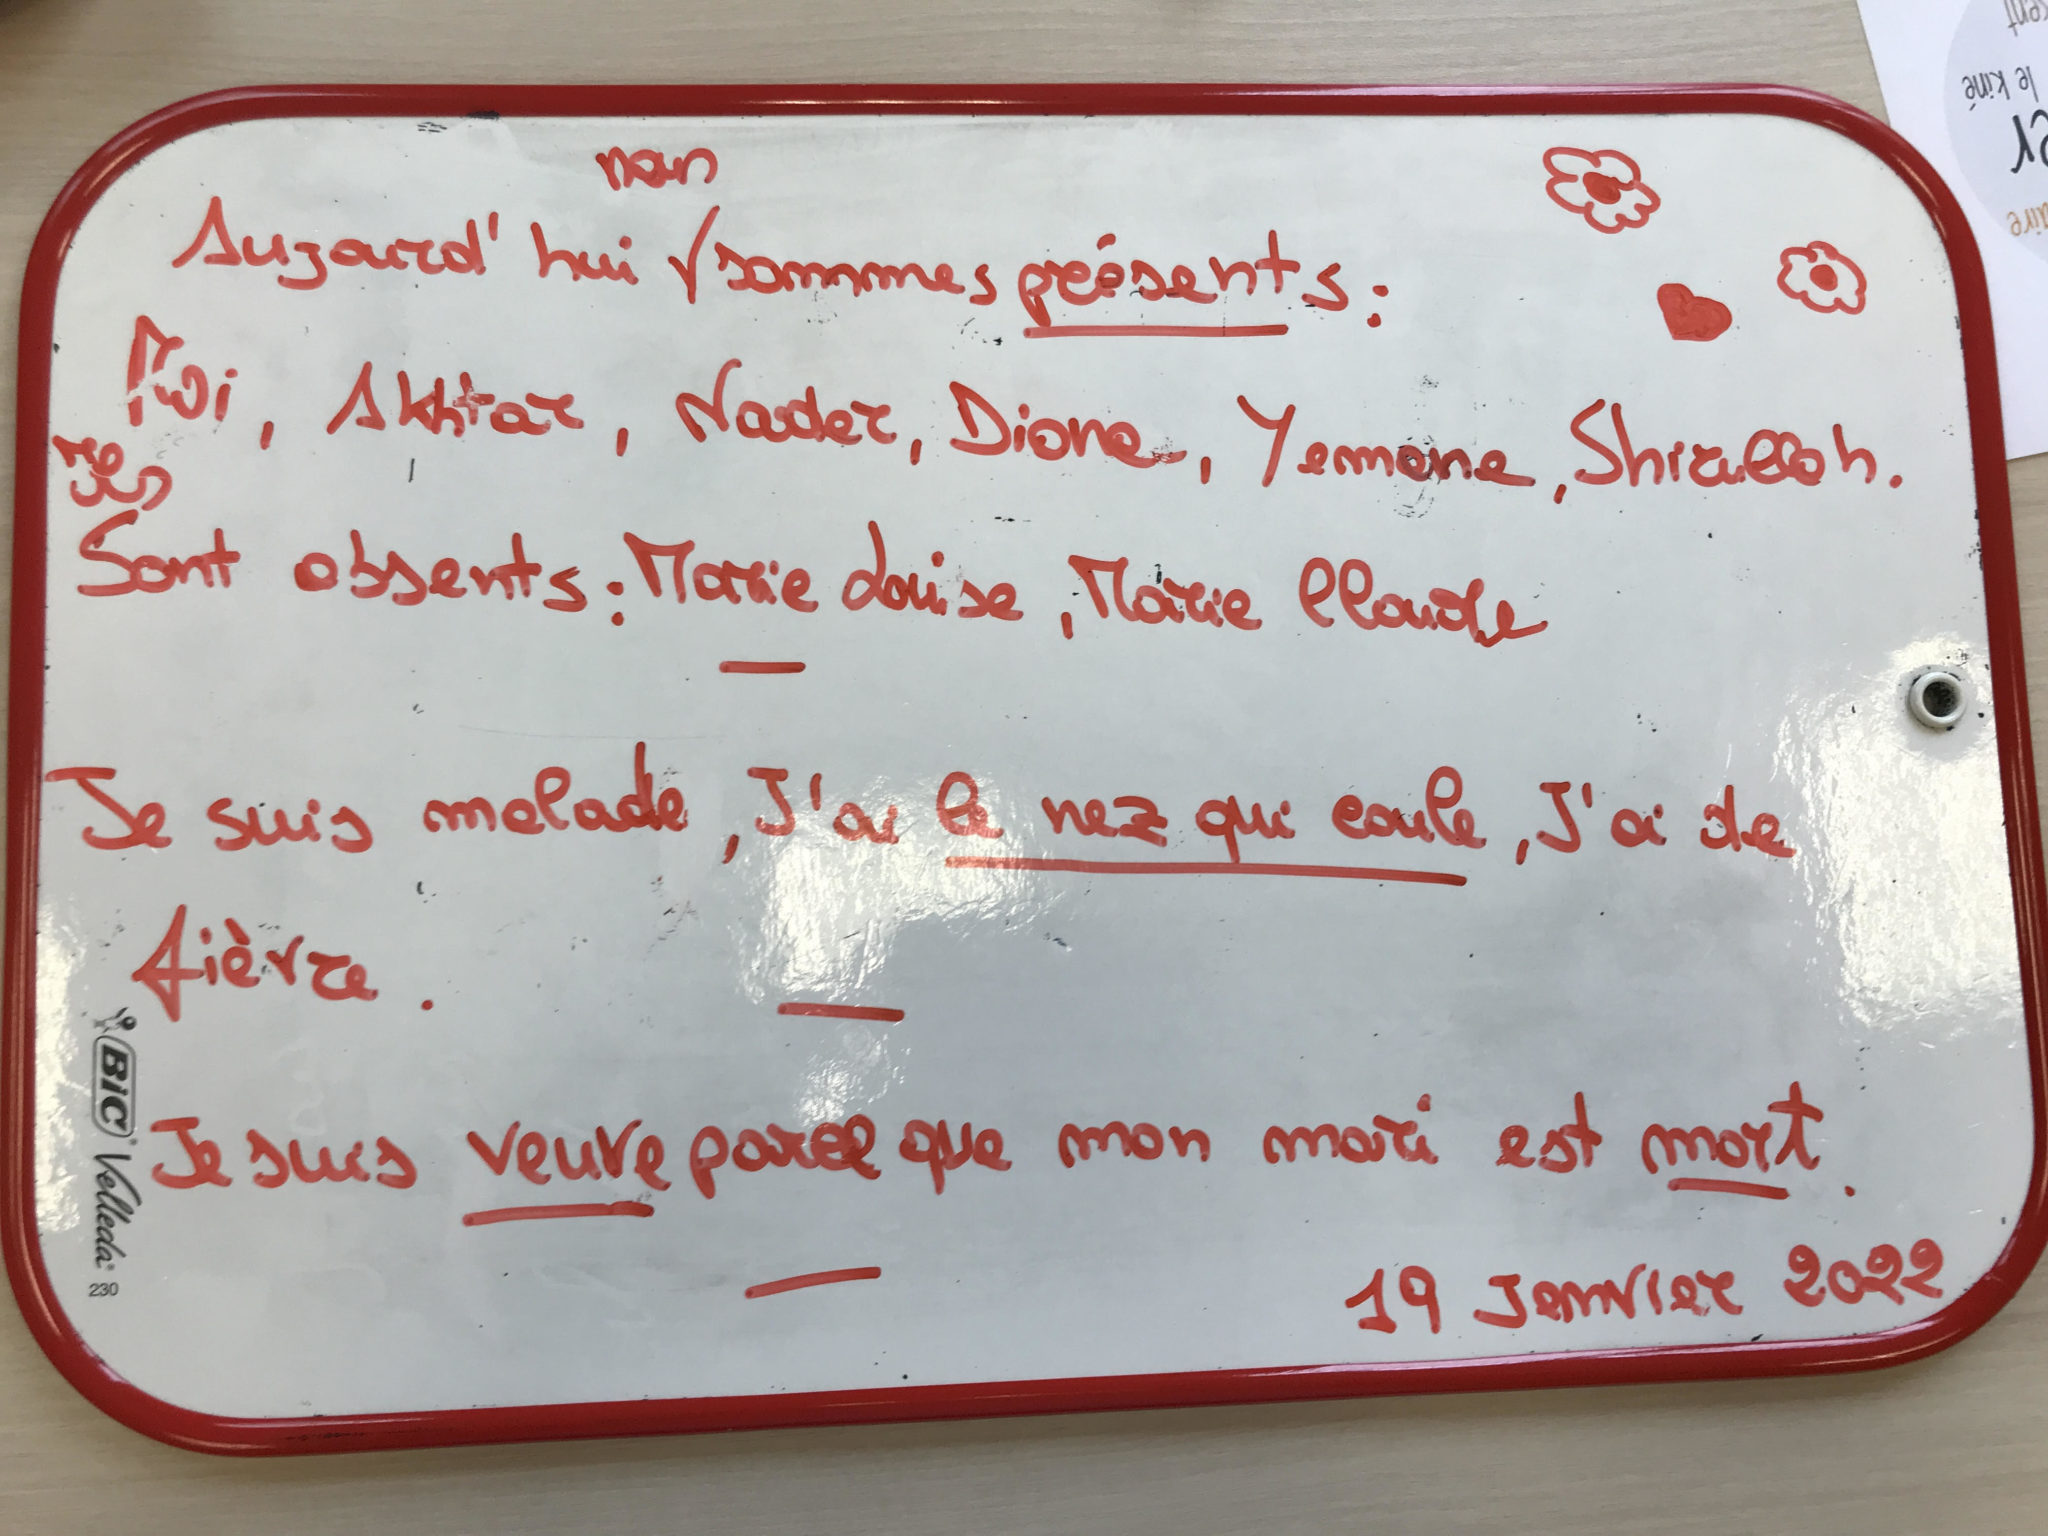 Aujourd'hui sommes présents :
Moi, Akhtar, Nader, Diane, Yemane, Shirullah.
Sont absents : Marie Louise, Marie Claude
Je suis malade, J'ai le nez qui coule, J'ai de
fièvre.
Je suis veuve parce que mon mari est mort.
19 Janvier 2022
BIC Velleda
230
le kiné